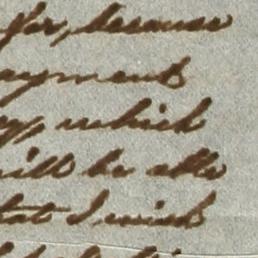 for, because
ayment
which
will be able
that I wish